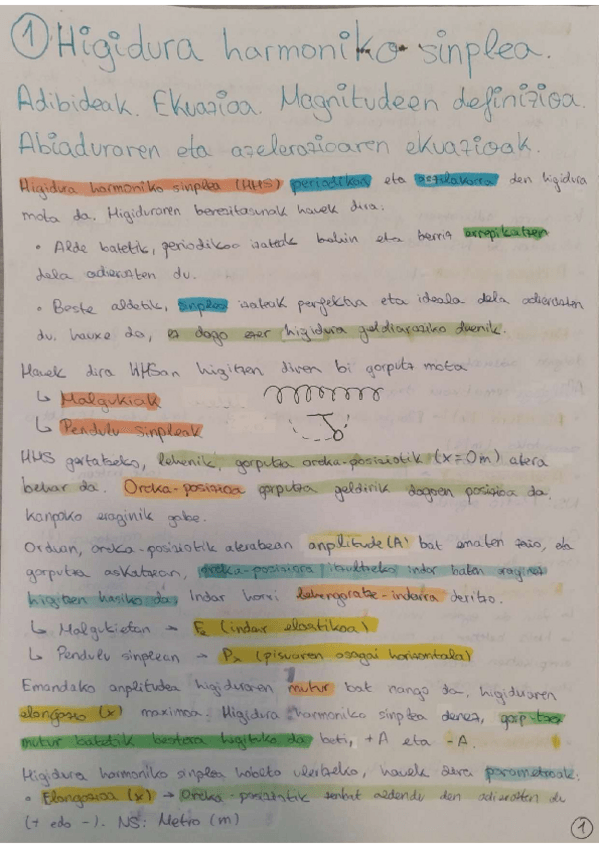 ① Higidura harmoniko sinplea.
Adibideak. Ekuazioa. Magnitudeen definizioa.
Abiaduraren eta azelerazioaren ekuazioak.
Higidura harmoniko sinplea (HHS) periodikoa eta oszilakorra den higidura
mota da. Higiduraren berezitasunak hauek dira:
• Alde batetik, periodikoa izateak behin eta berriz errepikatzen
dela adierazten du.
• Beste aldetik, sinplea izateak perfektua eta ideala dela adierazten
du, hauxe da, ez dago ezer higidura geldiaraziko duenik.
Hauek dira HHSan higitzen diren bi gorputz mota
↳ Malgukiak
↳ Pendulu sinpleak
HHS gertatzeko, lehenik, gorputza oreka-posiziotik (x=0m) atera
behar da. Oreka-posizioa gorputza geldirik dagoen posizioa da,
kanpoko eraginik gabe.
Orduan, oreka-posiziotik aterabean anplitude (A) bat ematen zaio, eta
gorputza askatzean, oreka-posiziora itzultzeko indar baten eraginez
higitzen hasiko da. Indar horri lehengoratze-indarra deritzo.
↳ Malgukietan → Fe (indar elastikoa)
↳ Pendulu sinplean → Px (pisuaren osagai horizontala)
Emandako anplitudea higiduraren mutur bat izango da, higiduraren
elongazio (x) maximoa. Higidura harmoniko sinplea denez, gorputza
mutur batetik bestera higituko da beti, +A eta -A.
Higidura harmoniko sinplea hobeto ulertzeko, hauek dira parametroak:
• Elongazioa (x) → Oreka-posiziotik zenbat aldendu den adierazten du
(+ edo -). NS: Metro (m)
①